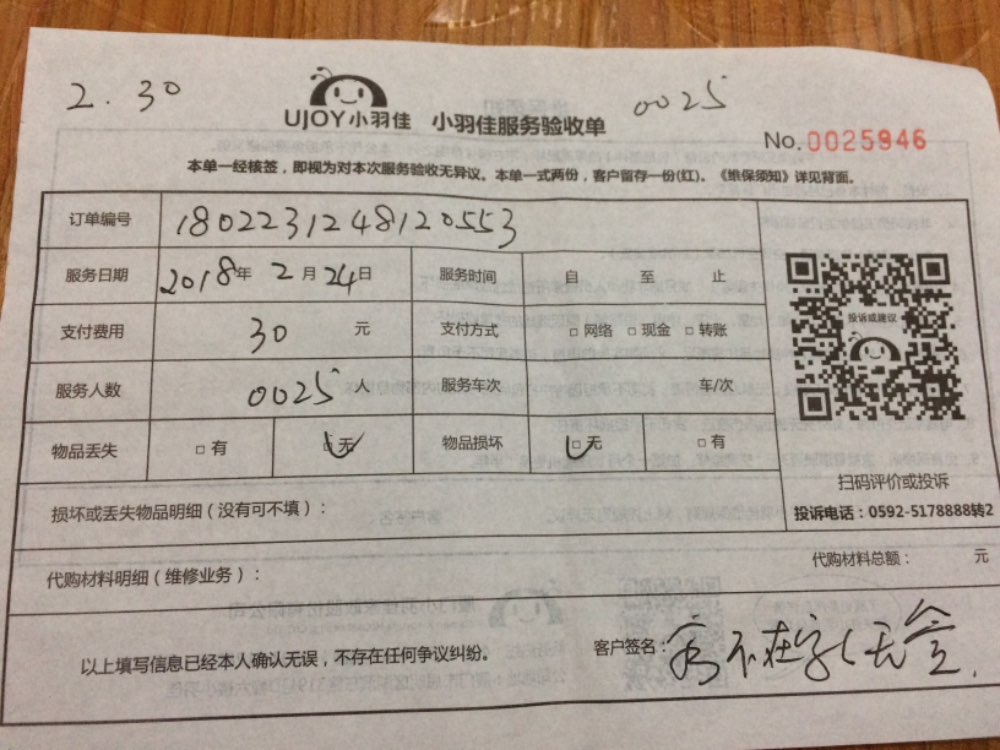 2.30
0025
UJOY小羽佳 小羽佳服务验收单
No.0025946
本单一经核签，即视为对本次服务验收无异议。本单一式两份，客户留存一份(红)。《维保须知》详见背面。
订单编号 1802231248120553
服务日期 2018年 2月 24日 服务时间 自 至 止
支付费用 30 元 支付方式 □网络 □现金 □转账
投诉或建议
服务人数 0025 服务车次 车/次
物品丢失 □有 □无 物品损坏 □无 □有
扫码评价或投诉
损坏或丢失物品明细（没有可不填）：
投诉电话：0592-5178888转2
代购材料明细（维修业务）：
代购材料总额： 元
以上填写信息已经本人确认无误，不存在任何争议纠纷。
客户签名： 不在家 无